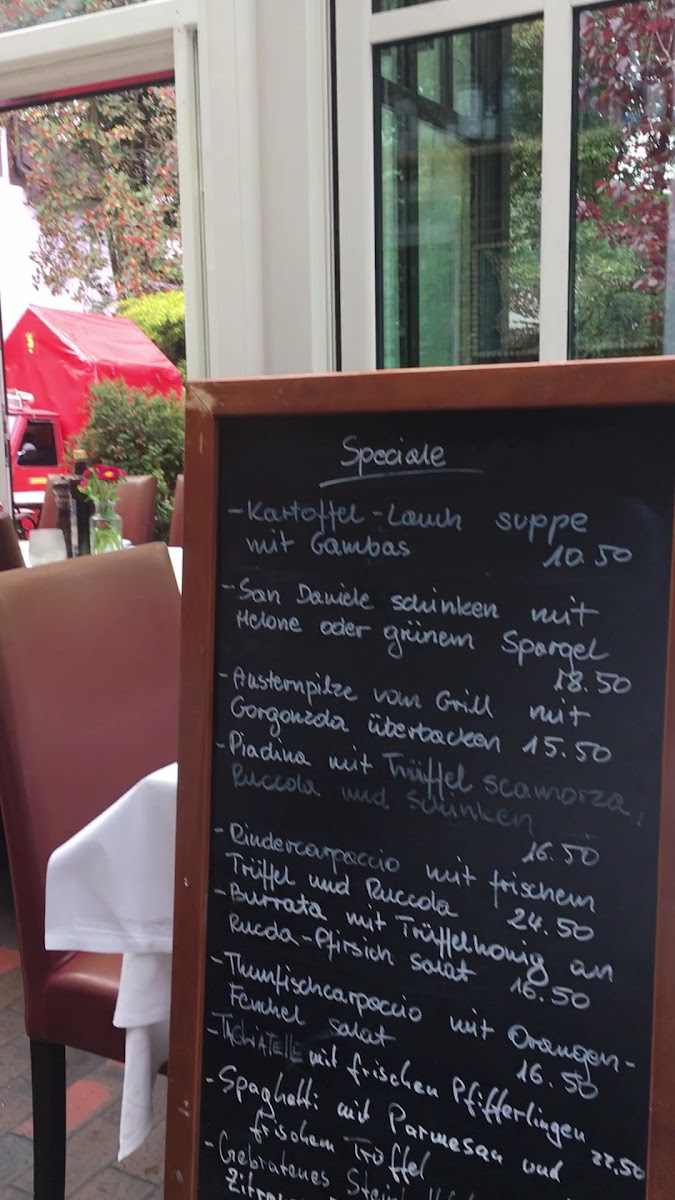 Speciale
- Kartoffel-Lauch suppe
mit Gambas 10.50
- San Daniele schinken mit
Melone oder grünem Spargel
18.50
- Austernpilze vom Grill mit
Gorgonzola überbacken 15.50
- Piadina mit Trüffel scamorza,
Ruccola und Schinken
16.50
- Rindercarpaccio mit frischem
Trüffel und Ruccola 24.50
- Burrata mit Trüffelhonig an
Rucola-Pfirsich salat 16.50
- Thunfischcarpaccio mit Orangen-
Fenchel salat 16.50
- TAGLIATELLE mit frischen Pfifferlingen
22,50
- Spaghetti mit Parmesan und
frischem Trüffel
- Gebratenes